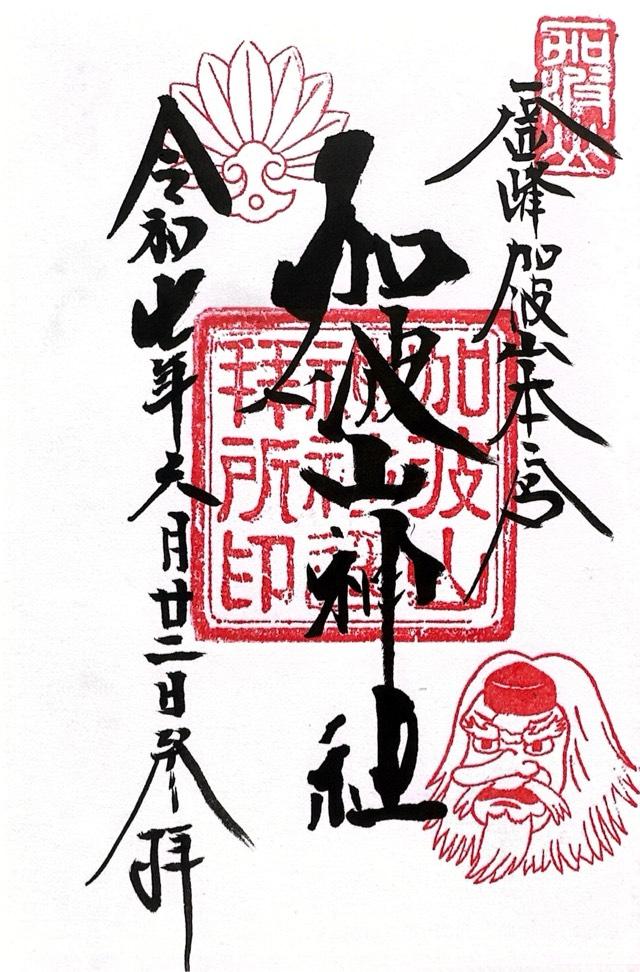 加波山
霊峰加波山本宮
加波山神社
加波山
神社
拝所印
令和七年六月廿二日参拝